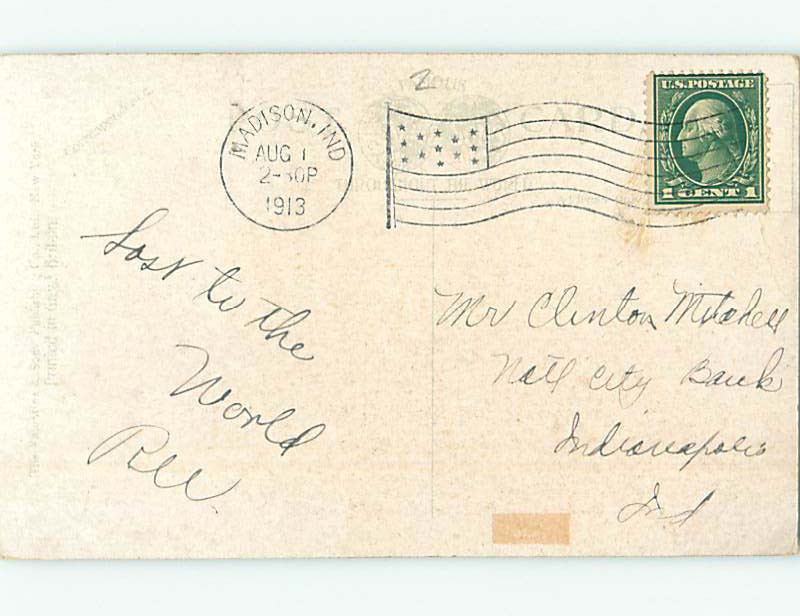 2
MADISON, IND
AUG 1
2-30P
1913
U.S. POSTAGE
1 CENT 1
Correspondence.
Lost to the
World
Mr Clinton Mitchell
Nat'l City Bank
Indianapolis
Ind